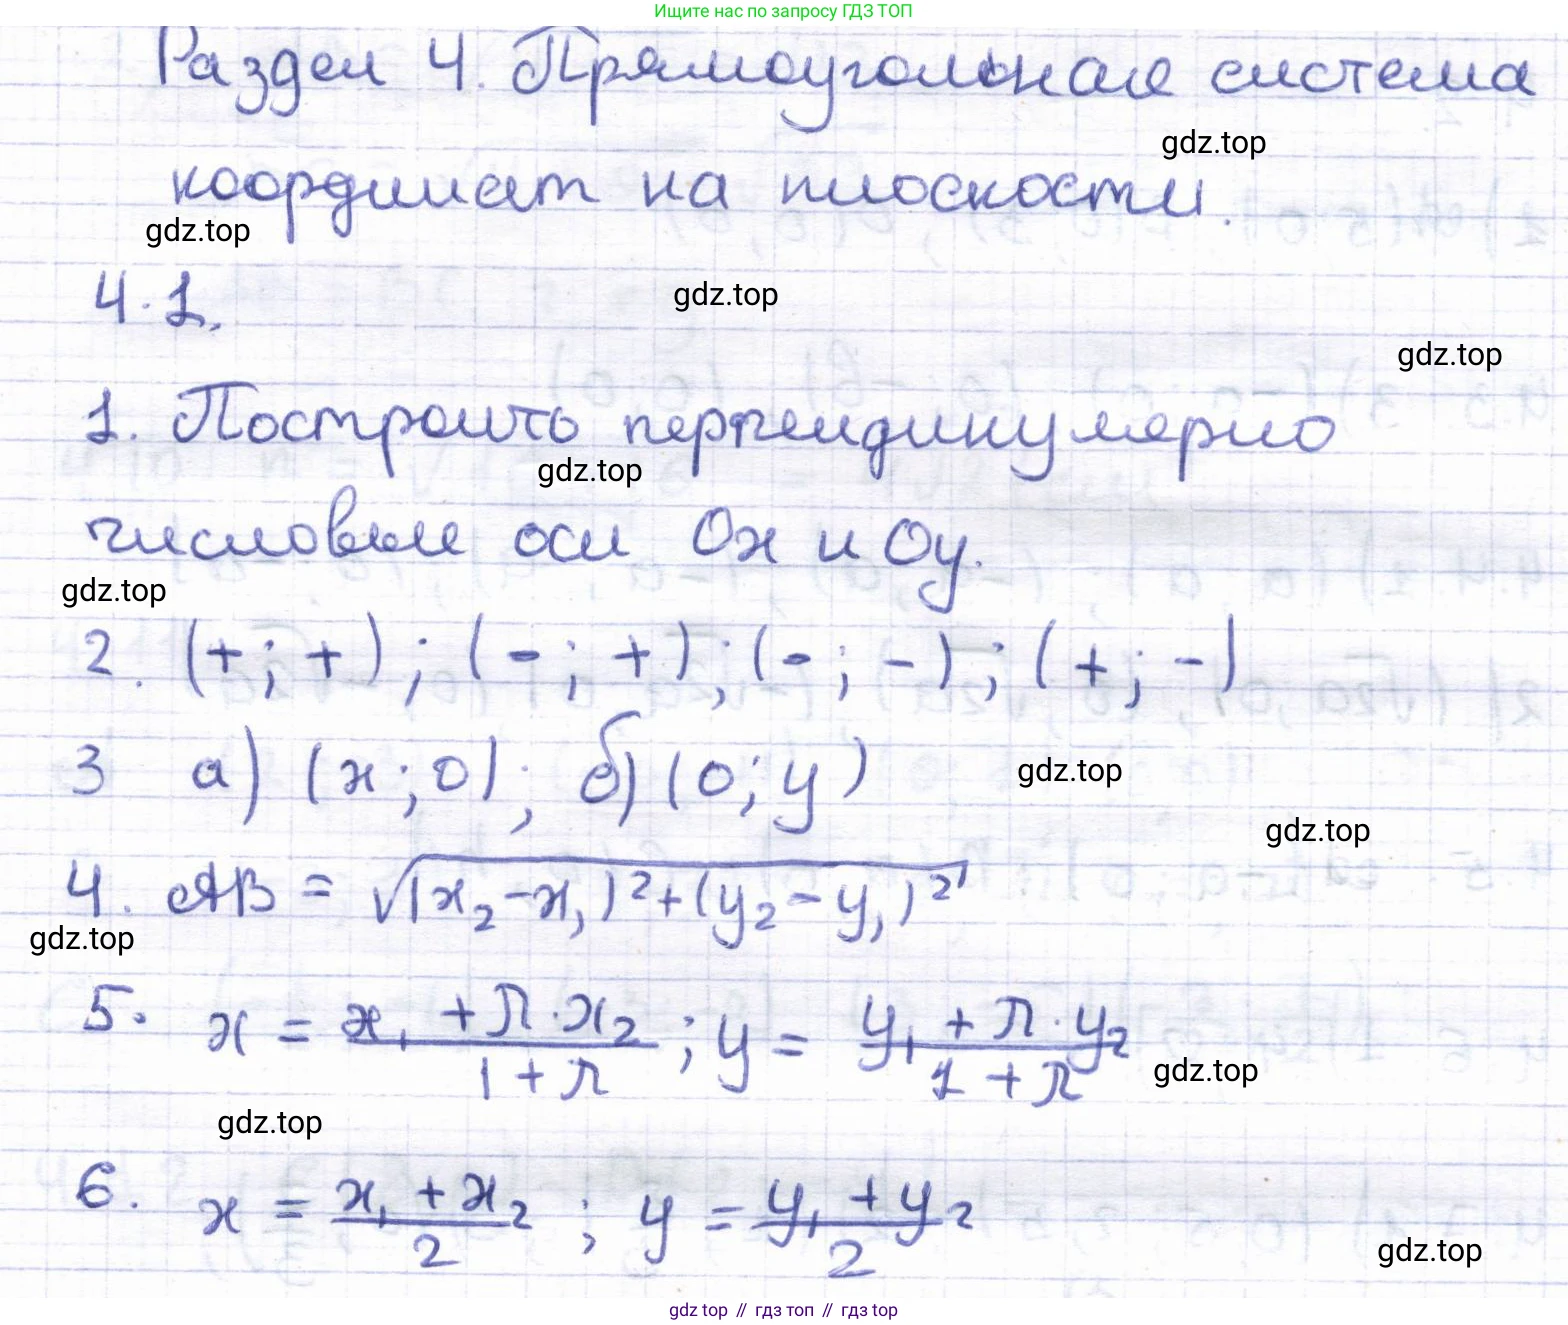 Ищите нас по запросу ГДЗ ТОП
Раздел 4. Прямоугольная система
gdz.top
координат на плоскости.
gdz.top
4.1.
gdz.top
gdz.top
1. Построить перпендикулярно
gdz.top
числовые оси Ox и Oy.
gdz.top
2. (+; +); (-; +); (-; -); (+; -)
3 а) (x; 0); б) (0; y)
gdz.top
gdz.top
4. AB = √((x₂-x₁)²+(y₂-y₁)²)
gdz.top
5. x = (x₁ + λ·x₂)/(1 + λ); y = (y₁ + λ·y₂)/(1 + λ)
gdz.top
gdz.top
6. x = (x₁ + x₂)/2; y = (y₁ + y₂)/2
gdz.top
gdz top // гдз топ // gdz top